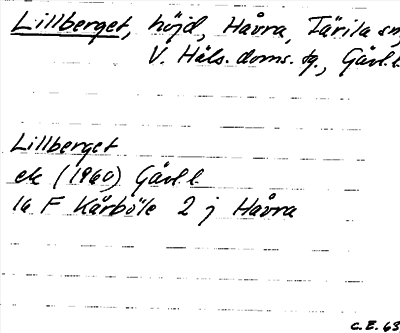 Lillberget, höjd, Håvra, Färila sn,
V. Häls. doms. sg., Gävl.l.
Lillberget
ek (1960) Gävl.l.
16 F Kårböle 2 j Håvra
C.E. 63